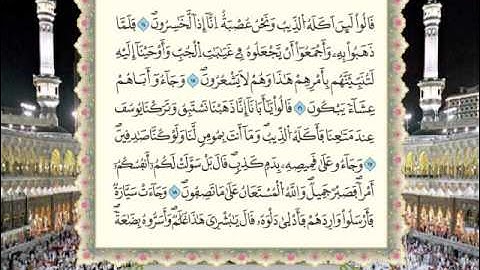 قَالُواْ لَئِنَ اَكَلَهُ الذِّيبُ وَنَحْنُ عُصْبَةٌ اِنَّآ إِذاً لَّخَٰسِرُونَ ١٤ فَلَمَّا
ذَهَبُواْ بِهِۦ وَأَجْمَعُوٓاْ أَنْ يَّجْعَلُوهُ فِے غَيَٰبَٰتِ الْجُبِّ وَأَوْحَيْنَآ إِلَيْهِ
لَتُنَبِّئَنَّهُم بِأَمْرِهِمْ هَٰذَا وَهُمْ لَا يَشْعُرُونَ ١٥ وَجَآءُوٓ أَبَاهُمْ
عِشَآءً يَبْكُونَ ١٦ قَالُواْ يَٰٓأَبَانَآ إِنَّا ذَهَبْنَا نَسْتَبِقُ وَتَرَكْنَا يُوسُفَ
عِندَ مَتَٰعِنَا فَأَكَلَهُ الذِّيبُ وَمَآ أَنتَ بِمُومِنٍ لَّنَا وَلَوْ كُنَّا صَٰدِقِينَ
١٧ وَجَآءُو عَلَىٰ قَمِيصِهِۦ بِدَمٍ كَذِبٍ قَالَ بَلْ سَوَّلَتْ لَكُمُۥٓ أَنفُسُكُمُۥٓ
أَمْراً فَصَبْرٌ جَمِيلٌ وَاللَّهُ الْمُسْتَعَانُ عَلَىٰ مَا تَصِفُونَ ١٨ وَجَآءَتْ سَيَّارَةٌ
فَأَرْسَلُواْ وَارِدَهُمْ فَأَدْلَىٰ دَلْوَهُۥ قَالَ يَٰبُشْرَٰىَ هَٰذَا غُلَٰمٌ وَأَسَرُّوهُ بِضَٰعَةً